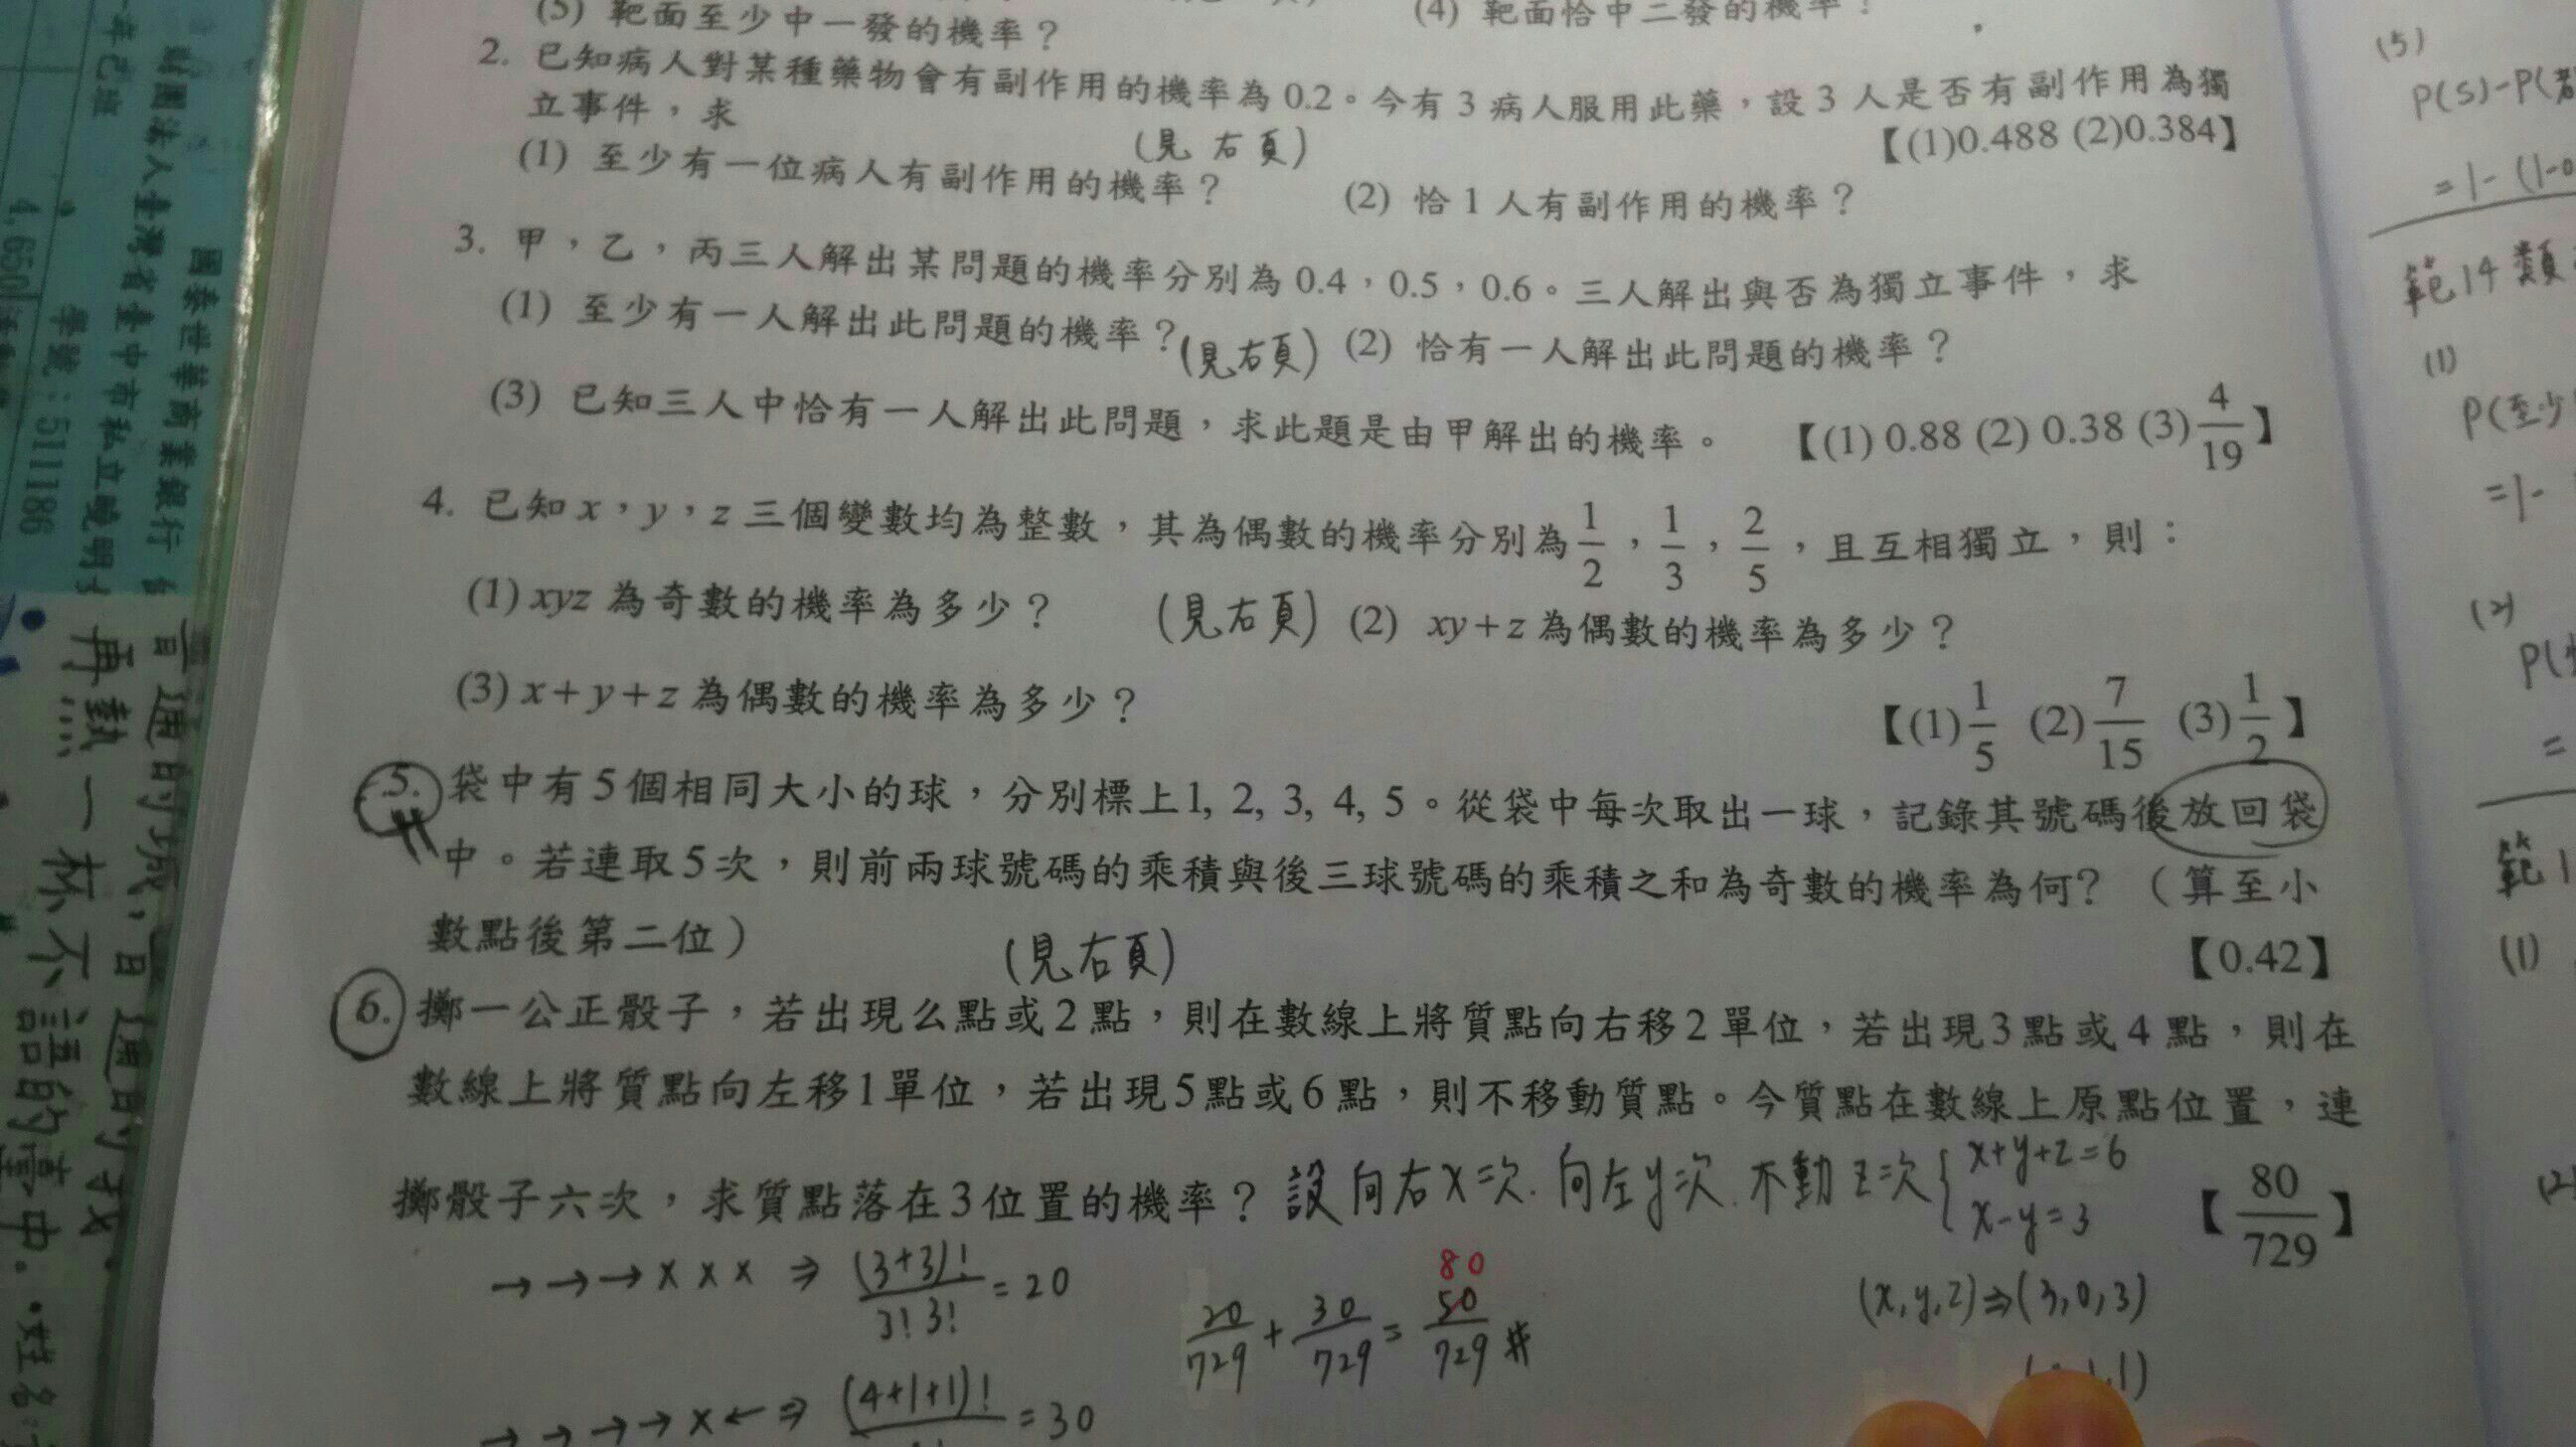 (5) 靶面至少中一發的機率？
(4) 靶面恰中二發的機率？
2. 已知病人對某種藥物會有副作用的機率為 0.2。今有 3 病人服用此藥，設 3 人是否有副作用為獨
立事件，求
(見右頁)
【(1)0.488 (2)0.384】
(1) 至少有一位病人有副作用的機率？
(2) 恰 1 人有副作用的機率？
3. 甲，乙，丙三人解出某問題的機率分別為 0.4，0.5，0.6。三人解出與否為獨立事件，求
(1) 至少有一人解出此問題的機率？(見右頁) (2) 恰有一人解出此問題的機率？
(3) 已知三人中恰有一人解出此問題，求此題是由甲解出的機率。 【(1) 0.88 (2) 0.38 (3) 4/19】
4. 已知 x，y，z 三個變數均為整數，其為偶數的機率分別為 1/2，1/3，2/5，且互相獨立，則：
(1) xyz 為奇數的機率為多少？ (見右頁) (2) xy+z 為偶數的機率為多少？
(3) x+y+z 為偶數的機率為多少？
【(1) 1/5 (2) 7/15 (3) 1/2】
5. 袋中有 5 個相同大小的球，分別標上 1, 2, 3, 4, 5。從袋中每次取出一球，記錄其號碼後放回袋
中。若連取 5 次，則前兩球號碼的乘積與後三球號碼的乘積之和為奇數的機率為何？（算至小
數點後第二位）
(見右頁)
【0.42】
6. 擲一公正骰子，若出現么點或 2 點，則在數線上將質點向右移 2 單位，若出現 3 點或 4 點，則在
數線上將質點向左移 1 單位，若出現 5 點或 6 點，則不移動質點。今質點在數線上原點位置，連
擲骰子六次，求質點落在 3 位置的機率？ 【80/729】
設向右x次.向左y次.不動z次 { x+y+z=6
x-y=3
→→→xxx ⇒ (3+3)!/3!3! = 20
80
20/729 + 30/729 = 50/729 #
(x,y,z)⇒(3,0,3)
→→→→x← ⇒ (4+1+1)! = 30
(5)
P(S)-P(
=1-(1-0
範14類
(1)
P(至少
=1-
(2)
P(
=
範1
(1)
(2)
財團法人臺灣省臺中市私立曉明
國泰世華商業銀行
學號：511186
4,650
再熱一杯不語的